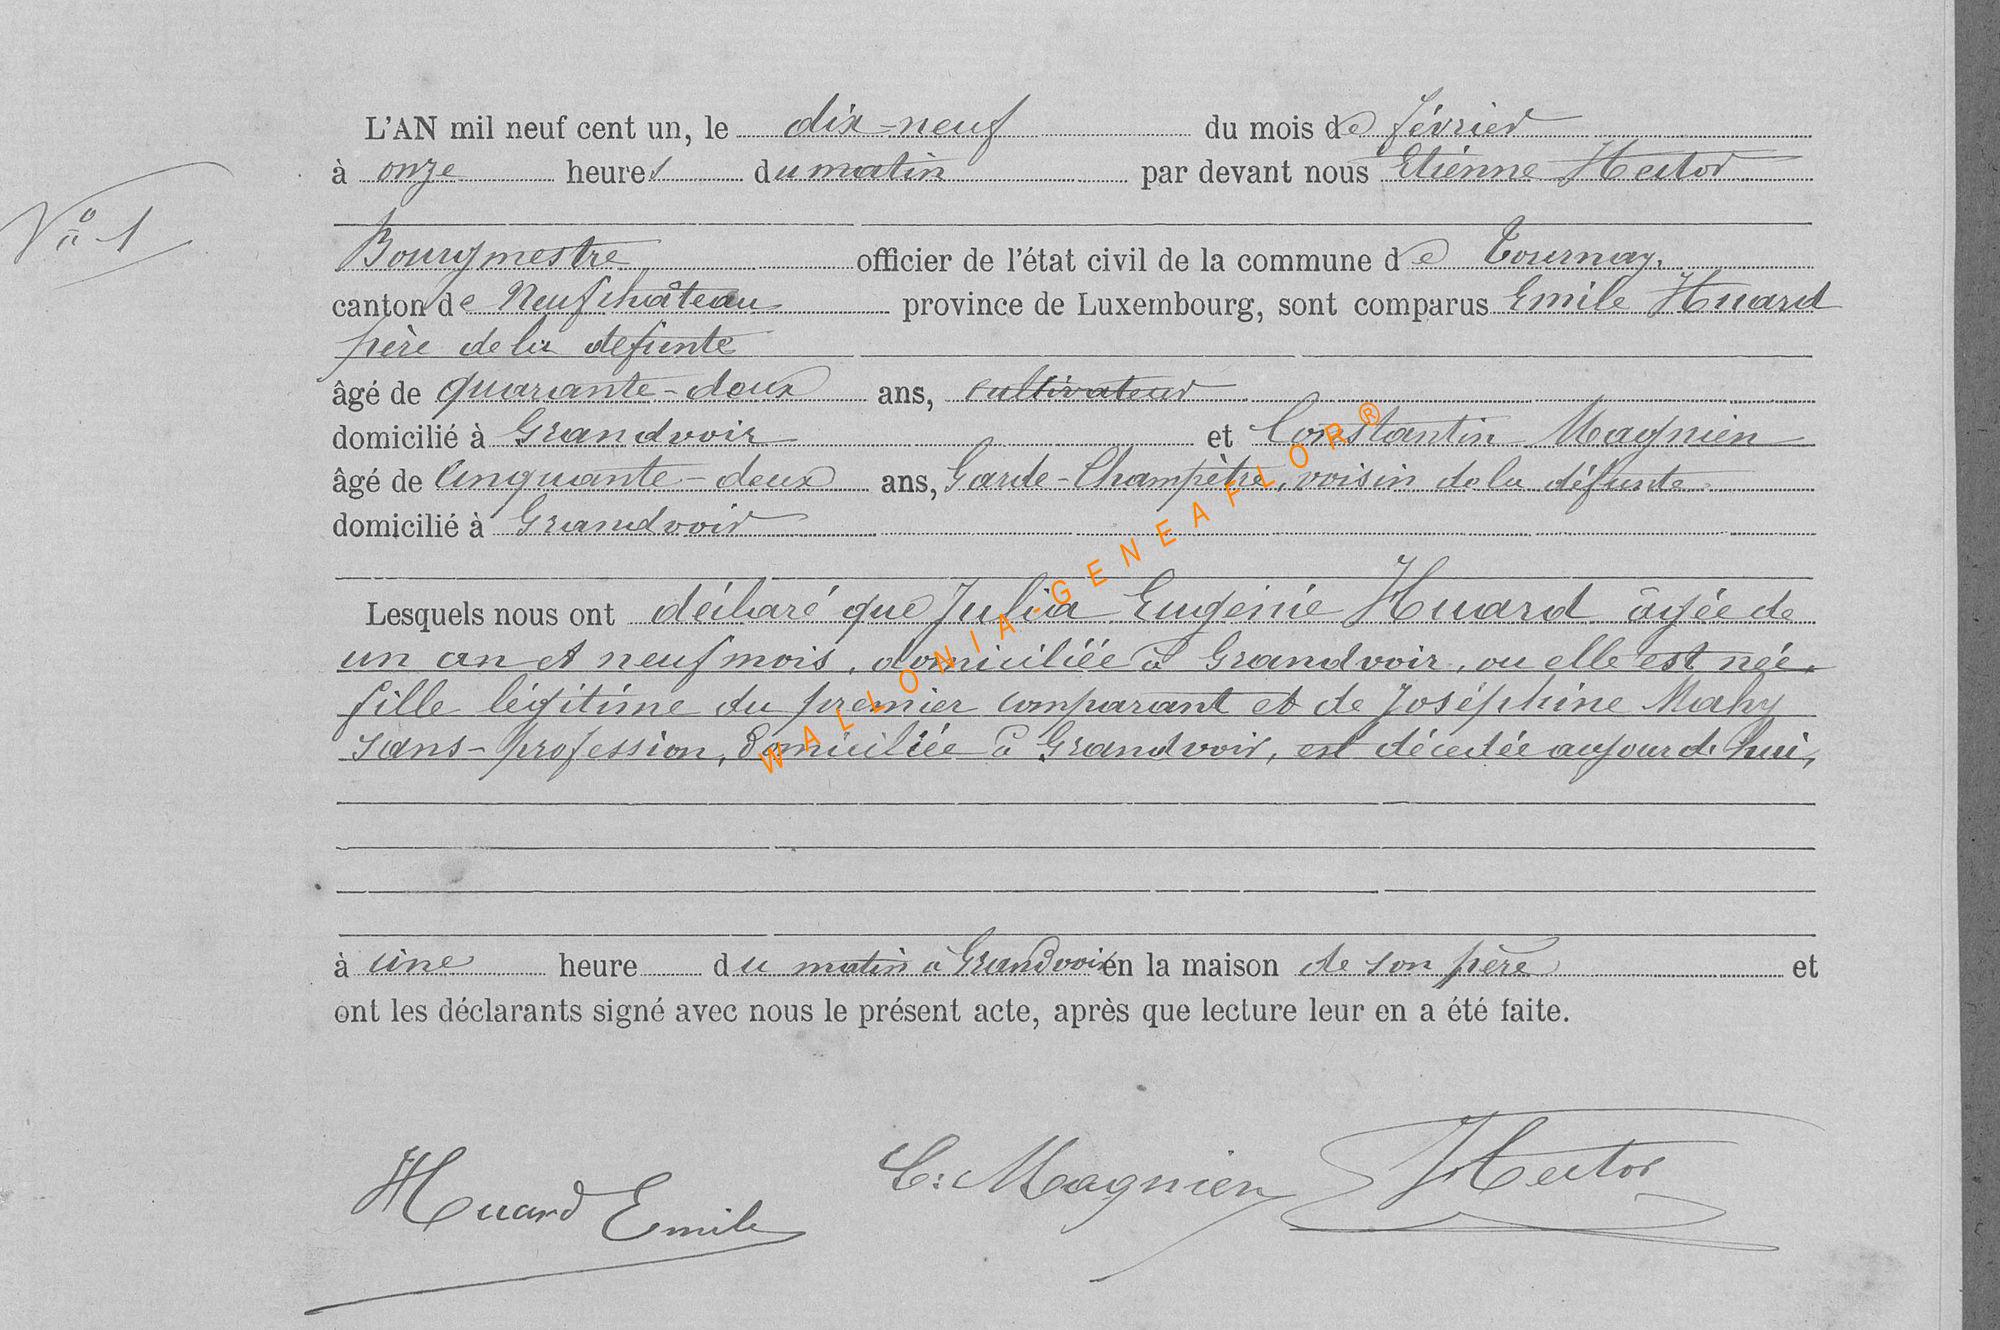 L'AN mil neuf cent un, le dix-neuf du mois de février
à onze heures du matin par devant nous Etienne Hector
N° 1
Bourgmestre officier de l'état civil de la commune de Tournay,
canton de Neufchâteau province de Luxembourg, sont comparus Emile Huard
père de la défunte
âgé de quarante-deux ans, cultivateur
domicilié à Grandvoir et Constantin Magnien
âgé de cinquante-deux ans, Garde-Champêtre, voisin de la défunte
domicilié à Grandvoir
Lesquels nous ont déclaré que Julia Eugénie Huard âgée de
un an et neuf mois, domiciliée à Grandvoir, ou elle est née,
fille légitime du premier comparant et de Joséphine Mahy
sans-profession, domiciliée à Grandvoir, est décédée aujourd'hui,
à une heure du matin à Grandvoir en la maison de son père et
ont les déclarants signé avec nous le présent acte, après que lecture leur en a été faite.
Huard Emile C. Magnien Hector
WALLONIA-GENEAFLOR®